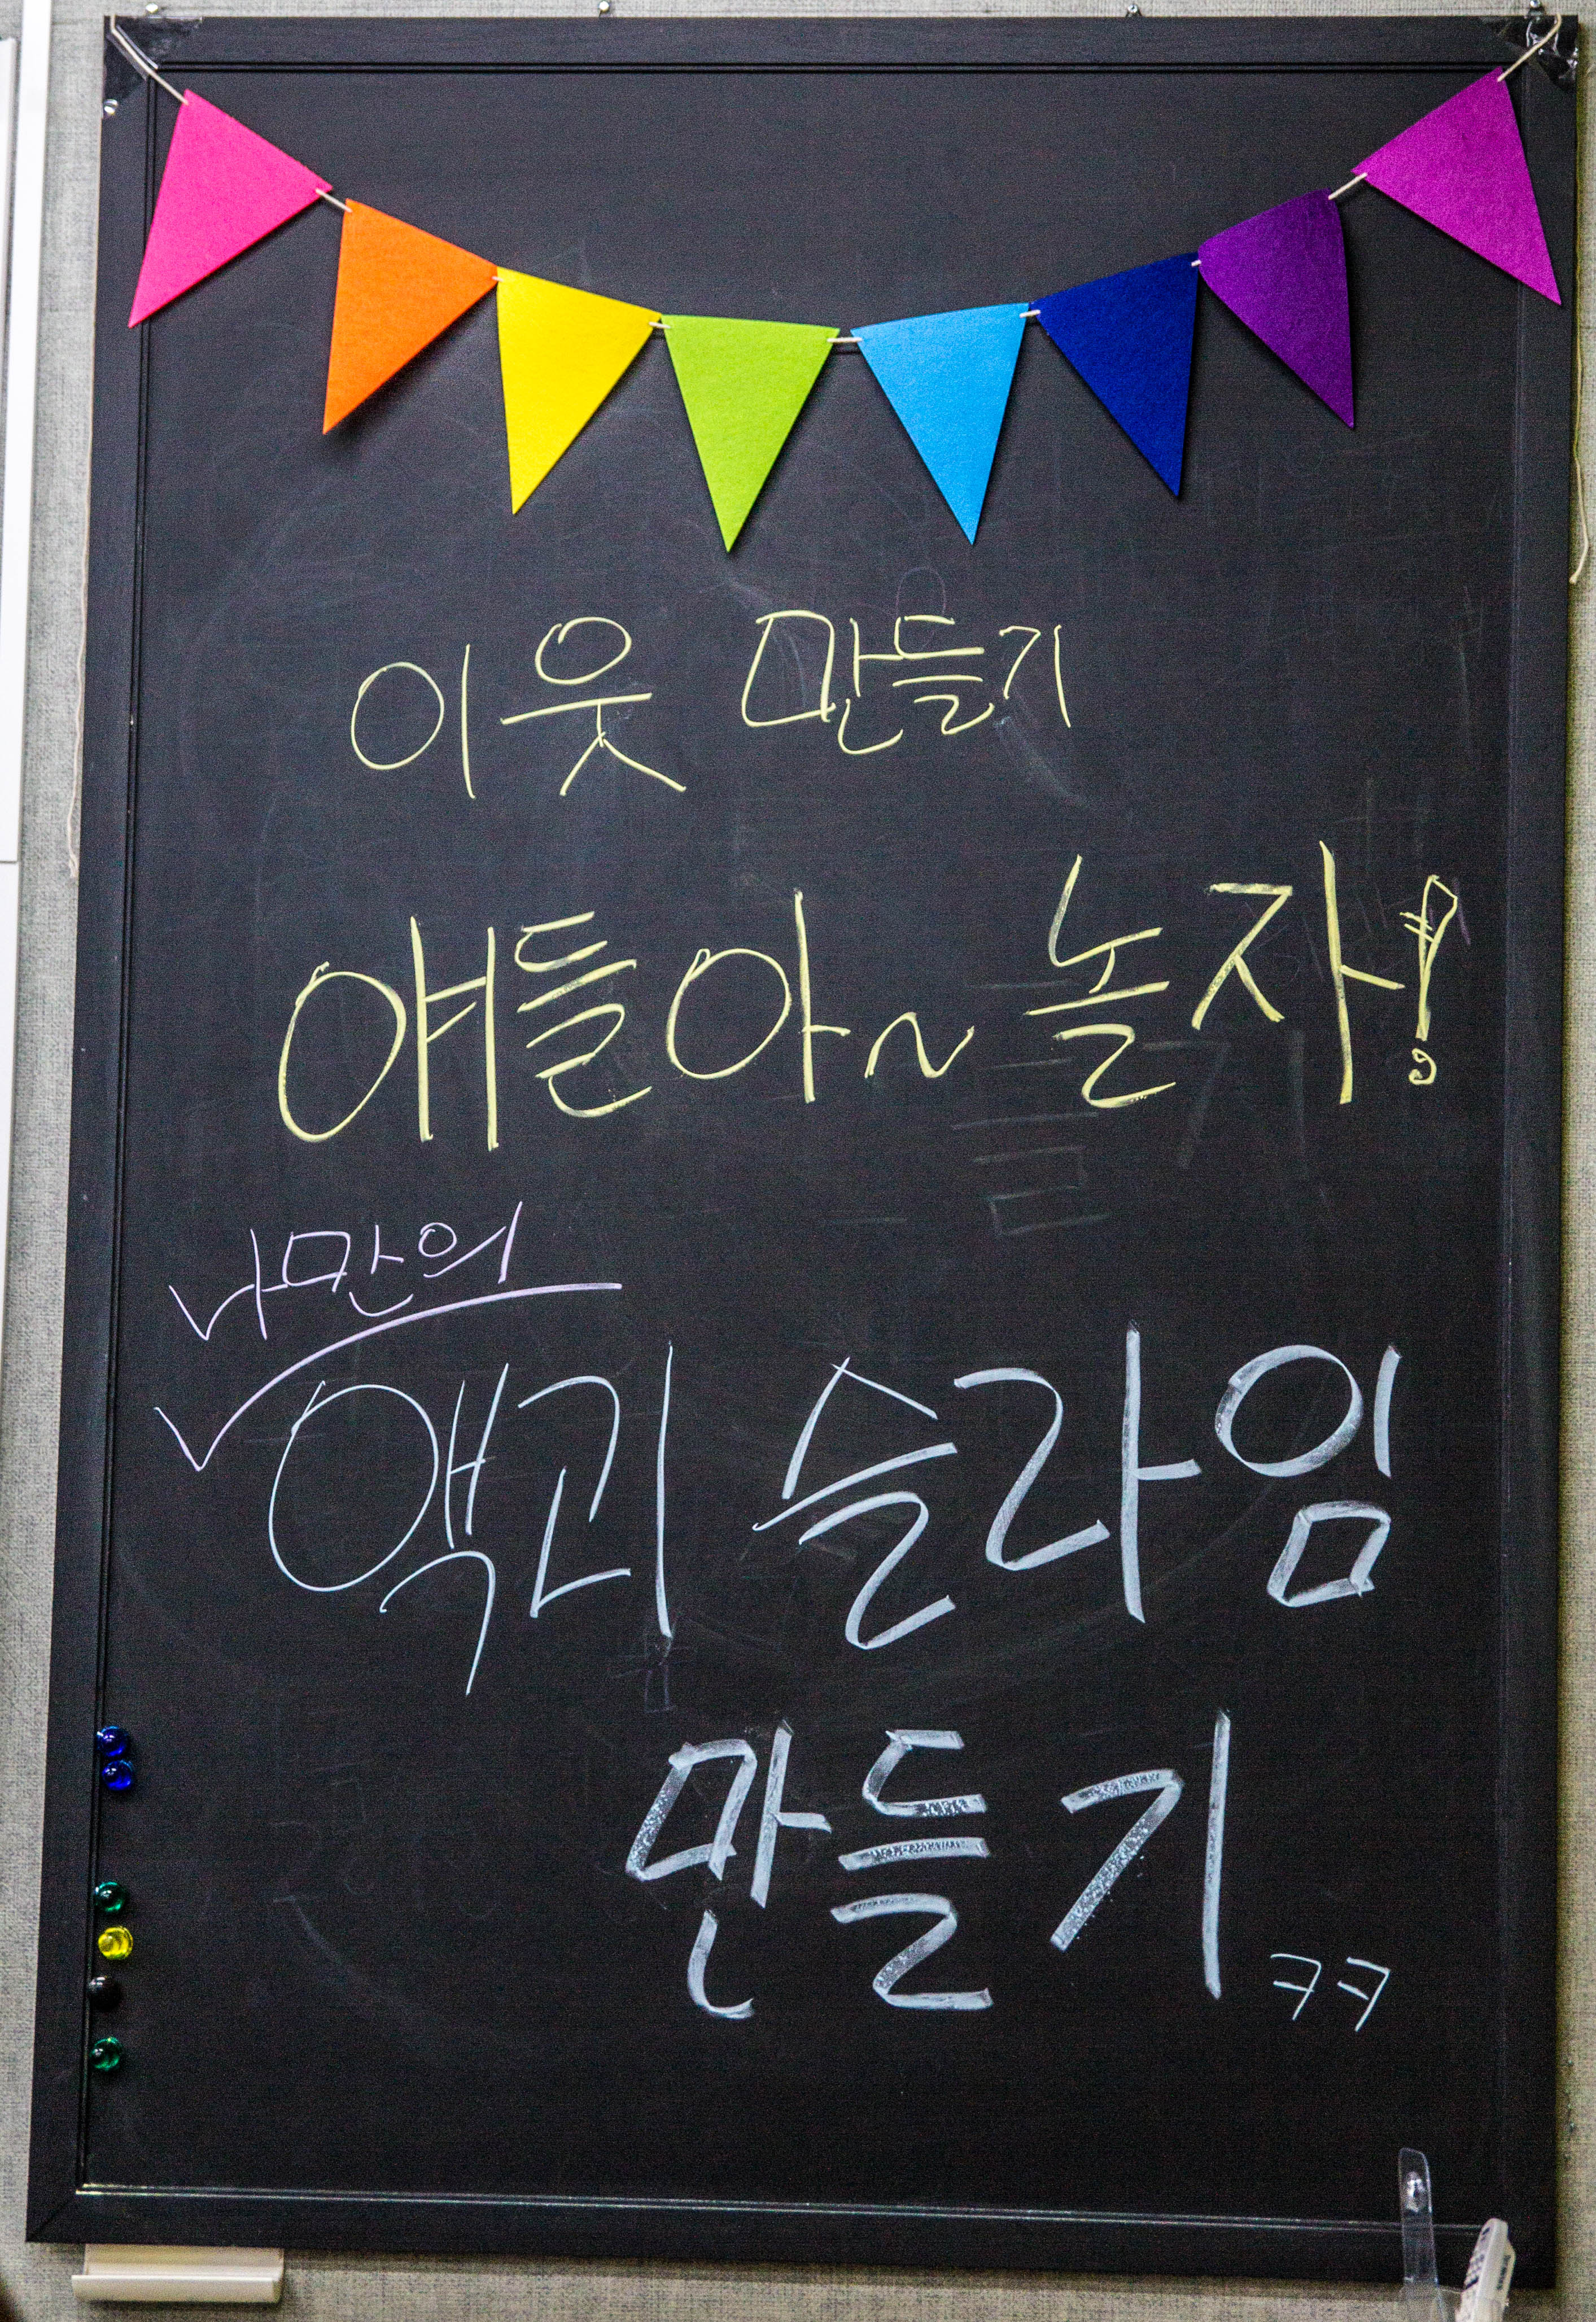 이웃 만들기
얘들아~ 놀자!
나만의
액괴 슬라임
만들기 ㅋㅋ